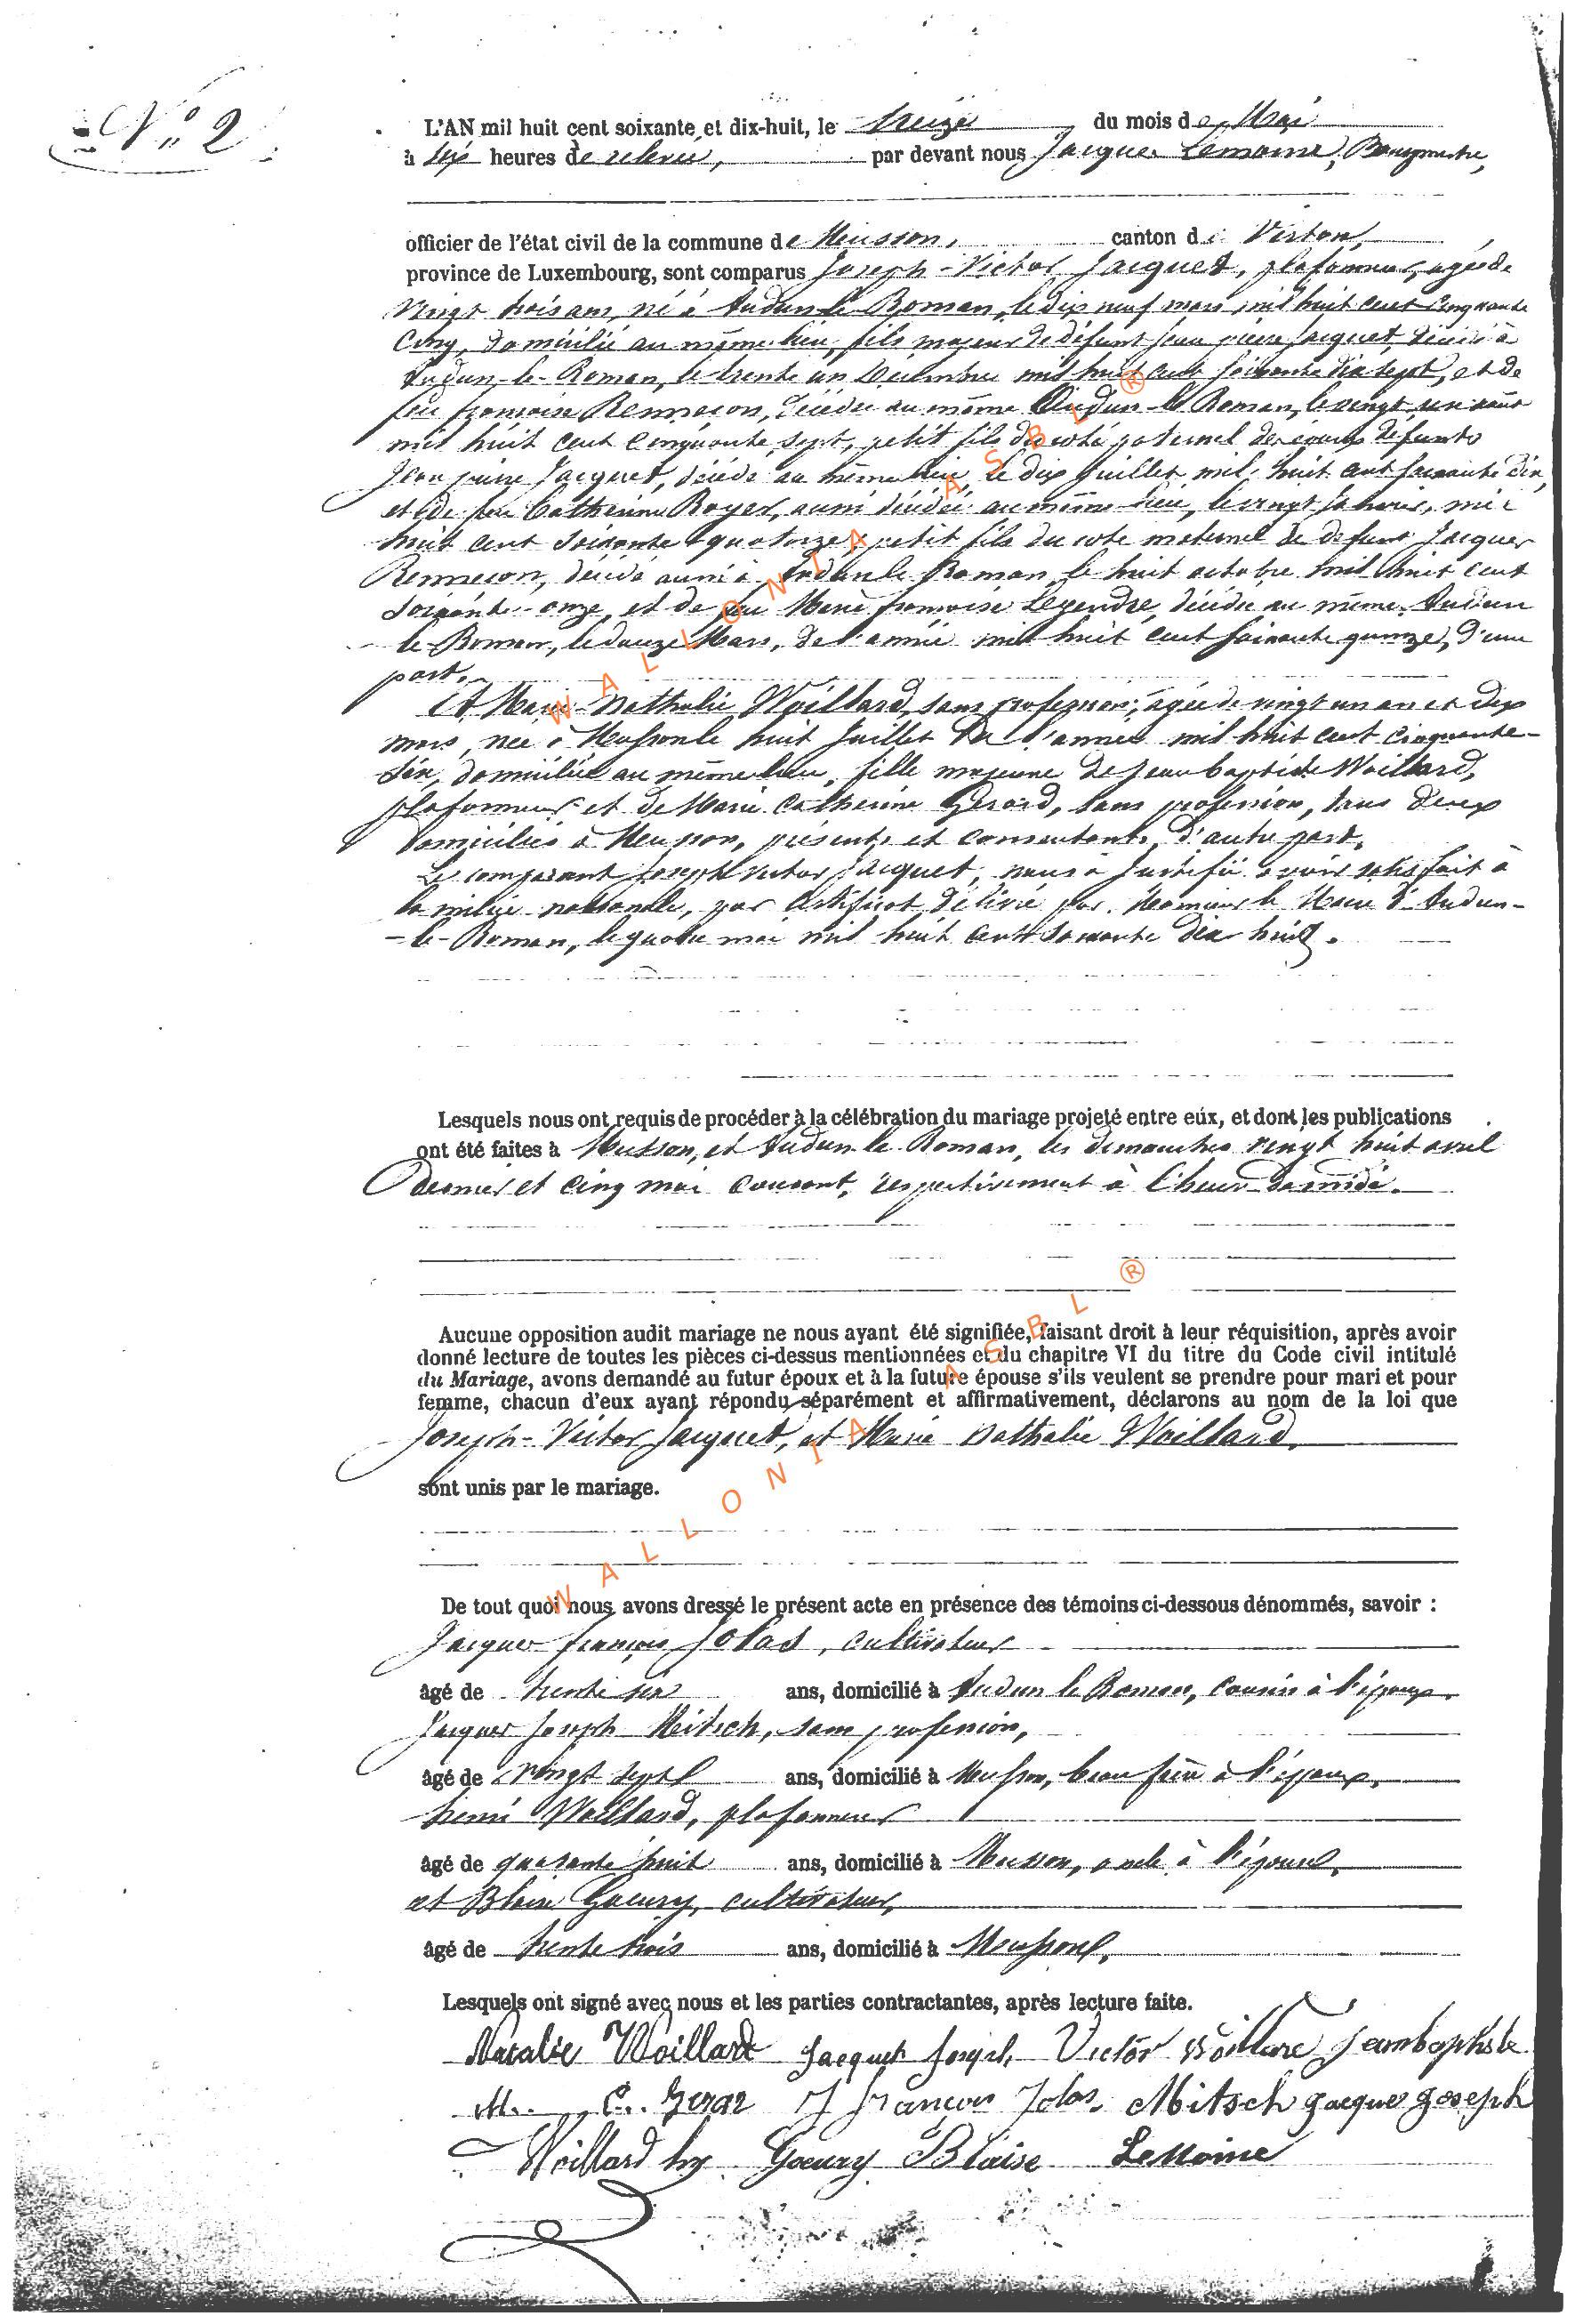 N° 2
L'AN mil huit cent soixante et dix-huit, le treize du mois de Mai
à six heures de relevée, par devant nous Jacques Lemoine, Bourgmestre,
officier de l'état civil de la commune de Musson, canton de Virton,
province de Luxembourg, sont comparus Joseph-Victor Jacquet, plafonneur, agé de
vingt trois ans, né à Audun-le-Roman, le dix neuf mars mil huit cent cinquante
cinq, domicilié au même lieu, fils majeur de défunt Jean pierre Jacquet, décédé à
Audun-le-Roman, le trente un Decembre mil huit cent soixante dix sept, et de
feu françoise Rennesson, décédée au même Audun-le Roman, le vingt un août
mil huit cent cinquante sept, petit fils du coté paternel des époux défunts
Jean pierre Jacquet, décédé au même lieu, le dix Juillet mil huit cent soixante dix,
et de feu Catherine Royer, aussi décédée au même lieu, le vingt janvier, mil
huit cent soixante quatorze, petit fils du coté maternel de defunt Jacques
Rennesson, décédé aussi à Audun le Roman, le huit octobre mil huit cent
soixante-onze, et de feu Marie françoise Legendre, décédée au même Audun
le-Roman, le douze Mars, de l'année mil huit cent soixante quinze, d'une
part.
Et Marie-Nathalie Woillard, sans profession, âgée de vingt un an et dix
mois, née à Musson le huit Juillet de l'année mil huit cent cinquante-
six, domiciliée au même lieu, fille majeure de Jean baptiste Woillard,
plafonneur et de Marie Catherine Gérard, sans profession, tous deux
domiciliés à Musson, présents et consentants, d'autre part.
Le comparant Joseph Victor Jacquet, nous a justifié avoir satisfait à
la milice nationale, par certificat délivré par Monsieur le Maire d'Audun-
-le-Roman, le quatre mai mil huit cent soixante dix huit.
Lesquels nous ont requis de procéder à la célébration du mariage projeté entre eux, et dont les publications
ont été faites à Musson, et Audun-le-Roman, les dimanches vingt huit avril
dernier et cinq mai courant, respectivement à l'heure de midi.
Aucune opposition audit mariage ne nous ayant été signifiée, faisant droit à leur réquisition, après avoir
donné lecture de toutes les pièces ci-dessus mentionnées et du chapitre VI du titre du Code civil intitulé
du Mariage, avons demandé au futur époux et à la future épouse s'ils veulent se prendre pour mari et pour
femme, chacun d'eux ayant répondu séparément et affirmativement, déclarons au nom de la loi que
Joseph-Victor Jacquet, et Marie Nathalie Woillard,
sont unis par le mariage.
De tout quoi nous avons dressé le présent acte en présence des témoins ci-dessous dénommés, savoir :
Jacques François Jolas, cultivateur
âgé de trente six ans, domicilié à Audun le Roman, cousin à l'époux.
Jacques Joseph Mitsch, sans profession,
âgé de vingt sept ans, domicilié à Musson, beau frère à l'époux,
henri Woillard, plafonneur
âgé de quarante huit ans, domicilié à Musson, oncle à l'épouse,
et Blaise Goeury, cultivateur,
âgé de trente trois ans, domicilié à Musson.
Lesquels ont signé avec nous et les parties contractantes, après lecture faite.
Natalie Woillard Jacquet Joseph Victor Woillard Jeanbaptiste
M. C. Gerar J françois Jolas Mitsch Jacques Joseph
Woillard hy Goeury Blaise Lemoine
WALLONIA ASBL ®
WALLONIA ASBL ®